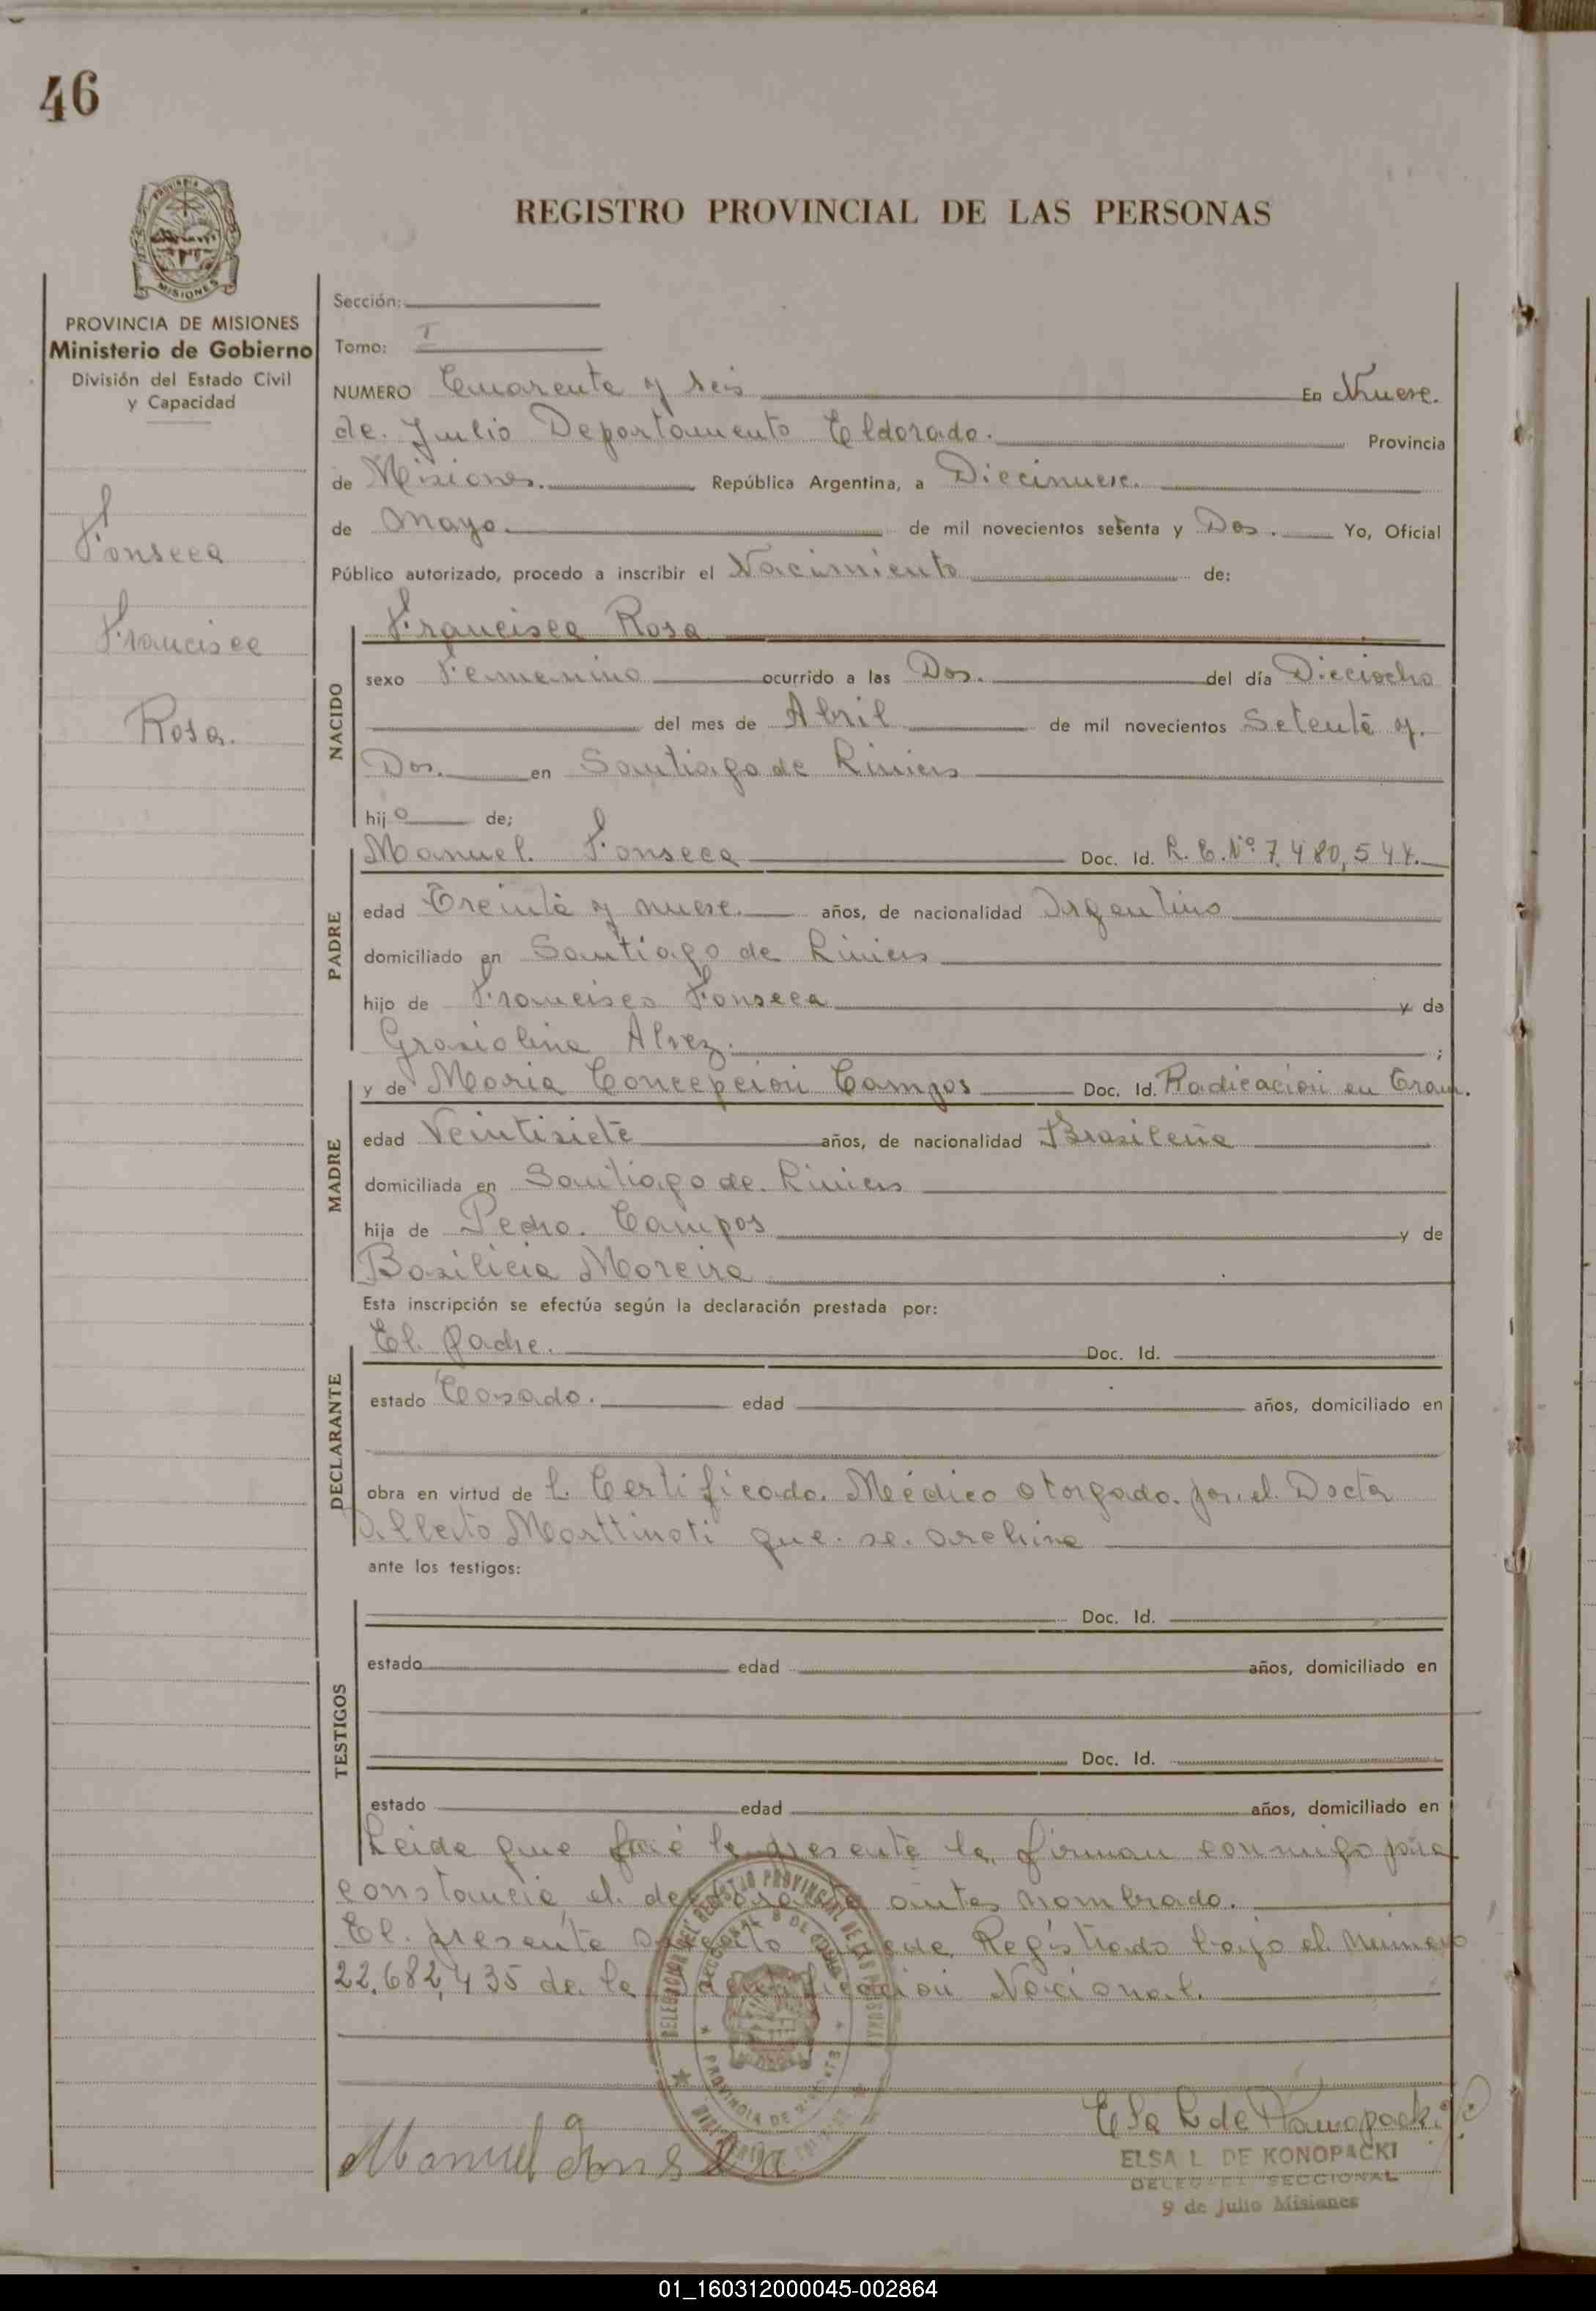 46
REGISTRO PROVINCIAL DE LAS PERSONAS
MISIONES
PROVINCIA DE MISIONES
Ministerio de Gobierno
División del Estado Civil
y Capacidad
Fonseca
Francisca
Rosa.
Sección:
Tomo: I
NUMERO Cuarenta y seis En Nueve.
de. Julio Departamento Eldorado. Provincia
de Misiones. República Argentina, a Diecinueve.
de Mayo. de mil novecientos setenta y Dos. Yo, Oficial
Público autorizado, procedo a inscribir el Nacimiento de:
NACIDO
Francisca Rosa
sexo Femenino ocurrido a las Dos. del día Dieciocho
del mes de Abril de mil novecientos Setenta y.
Dos. en Santiago de Liniers
hijo de;
PADRE
Manuel. Fonseca Doc. Id. L. E. Nº 7.480,544.
edad Treinta y nueve. años, de nacionalidad Argentino
domiciliado en Santiago de Liniers
hijo de Francisco Fonseca y de
Grasiolina Alvez. ;
MADRE
y de Maria Concepción Campos Doc. Id. Radicación en Tram.
edad Veintisiete años, de nacionalidad Brasileña
domiciliada en Santiago de. Liniers
hija de Pedro. Campos y de
Basilicia Moreira
Esta inscripción se efectúa según la declaración prestada por:
DECLARANTE
El. Padre. Doc. Id.
estado Casado. edad años, domiciliado en
obra en virtud de l. Certificado. Médico otorgado. por. el. Doctor
Alberto Marttinoti que. se. archiva
ante los testigos:
TESTIGOS
Doc. Id.
estado edad años, domiciliado en
Doc. Id.
estado edad años, domiciliado en
Leida que fué la presente la firman conmigo para
constancia el. declarante antes nombrado.
El. presente queda Registrado bajo el número
22.682,435 de la Identificación Nacional.
DELEGACION DEL REGISTRO PROVINCIAL DE LAS PERSONAS
PROVINCIA DE MISIONES
Manuel Fonseca
Elsa L de Konopacki
ELSA L DE KONOPACKI
DELEGADA SECCIONAL
9 de Julio Misiones
01_160312000045-002864